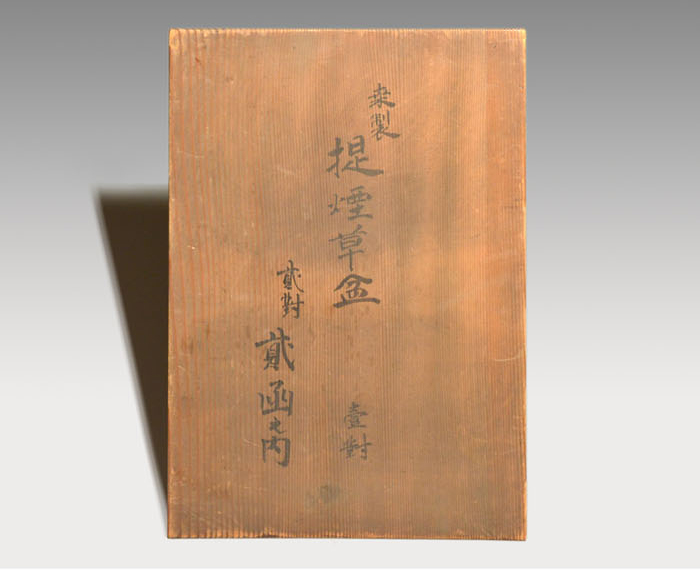 桒製
提煙草盆
壹對
貳對
貳函之内